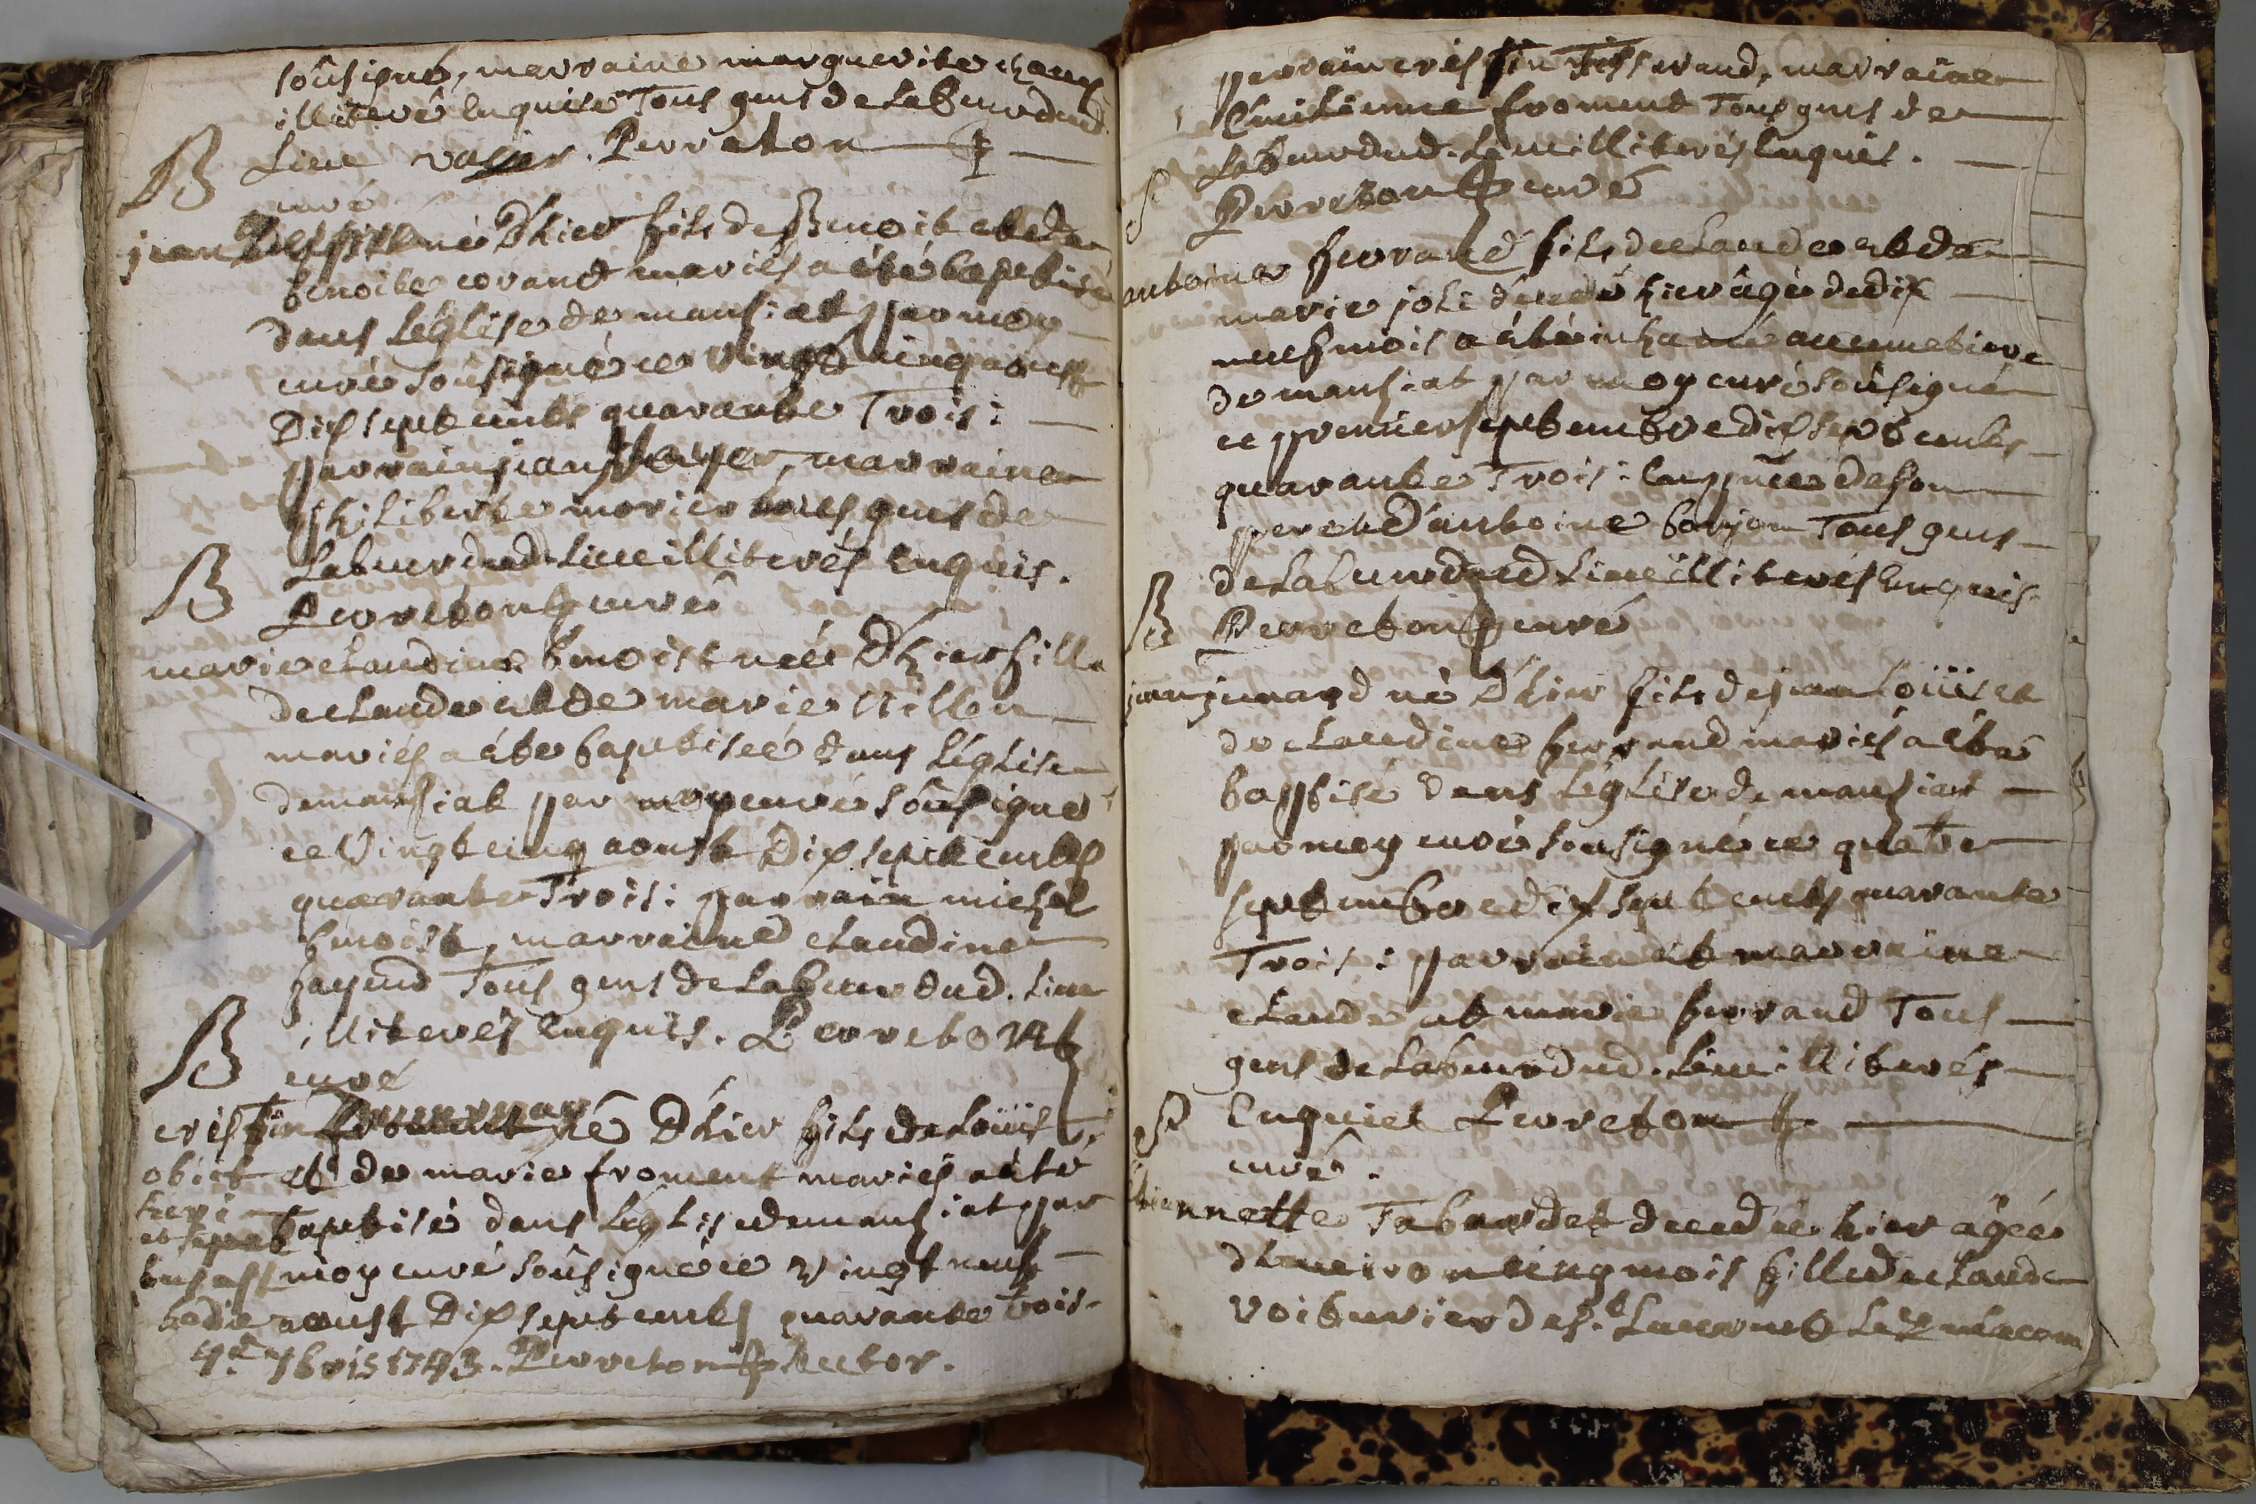 soûsigné, marraine marguerite
illiteré enquise Tous gens de Labeur dud.
B
Lieu Perreton
curé
jean né D'hier fils de Benoit et de
benoite corand mariés a été baptisé
dans L'église de mansiat par moy
curé soûsigné ce vingt cinq aoust
Dix sept cents quarante Trois :
parrain jean marraine
philiberte morier tous gens de
B
Labeur dud. Lieu illiterés enquis.
Perreton curé
marie claudine benoist née D'hier fille
de claude et de marie
mariés a été baptiseé dans L'église
de mansiat par moy curé soûsigné
ce Vingt cinq aoust Dix sept cents
quarante Trois : parrain michel
benoist, marraine claudine
fayend Tous gens de Labeur dud. Lieu
B
illiterés enquis. Perreton
curé
cristin né D'hier fils de Loüis
obiit et de marie froment mariés a été
heri
baptisé dans L'église de mansiat par
moy curé soûsigné ce vingt neuf
hodie aoust Dix sept cents quarante Trois.
4a 7bris 1743. Perreton Rector.
parrain cristin Tisserand, marraine
froment Tous gens de
Labeur dud. Lieu illiterés enquis.
S
Perreton curé
antoine ferrand fils de claude et de
marie joli décédé hier âgé de dix
neuf mois a été inhamé au cimetiere
de mansiat par moy curé soûsigné
ce premier septembre dix sept cents
quarante Trois : en pñce de son
pere et D'antoine Tous gens
de Labeur dud Lieu illiterés enquis.
B
Perreton curé
jean junand né D'hier fils de jean Loüis et
de claudine ferrand mariés a été
baptisé dans L'église de mansiat
par moy curé sousigné ce quatre
septembre dix sept cents quarante
Trois : parrain et marraine
claude et marie ferrand Tous
gens de Labeur dud. Lieu illiterés
S
Enquis Perreton
curé.
etiennette Tabardet decedée hier âgée
d'environ cinq mois fille de claude
voiturier de St. Laurent Lez mâcon